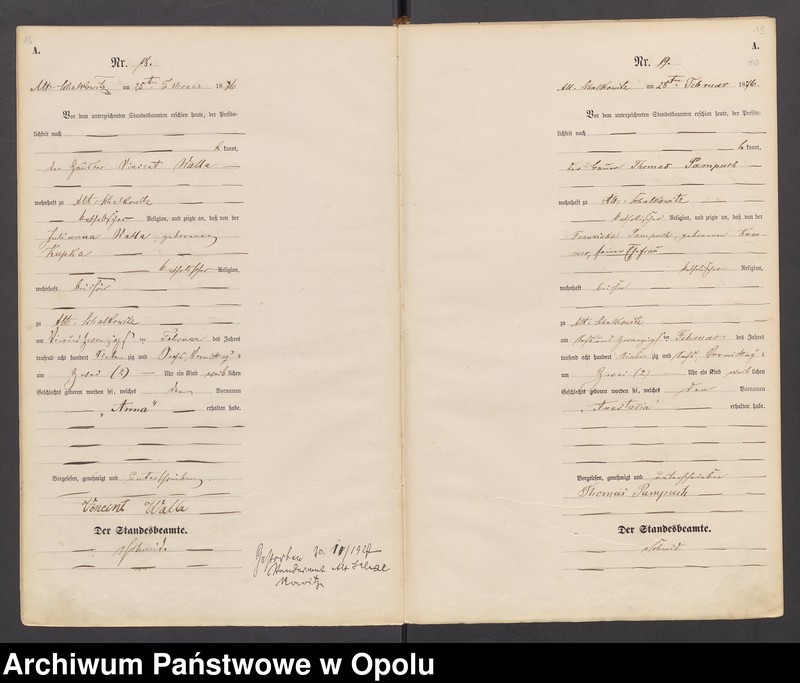 A.
Nr. 18.
Alt-Schalkowitz am 25ten Februar 1876
Vor dem unterzeichneten Standesbeamten erschien heute, der Persön-
lichkeit nach
kannt,
der Vincent Walla
wohnhaft zu Alt-Schalkowitz
katholischer Religion, und zeigte an, daß von der
Julianna Walla geborenen
Kupka
katholischer Religion,
wohnhaft bei ihm
zu Alt-Schalkowitz
am ten Februar des Jahres
tausend acht hundert sieben zig und sechs, Vormittags
um Zwei (2) Uhr ein Kind weiblichen
Geschlechts geboren worden sei, welches den Vornamen
„Anna" erhalten habe.
Vorgelesen, genehmigt und unterschrieben.
Vincent Walla
Der Standesbeamte.
Gestorben 20. /192
Standesamt Alt Schal
kowitz
19
A.
Nr. 19.
Alt-Schalkowitz am 28ten Februar 1876.
Vor dem unterzeichneten Standesbeamten erschien heute, der Persön-
lichkeit nach
be kannt,
der Bauer Thomas Pampuch
wohnhaft zu Alt-Schalkowitz
katholischer Religion, und zeigte an, daß von der
Franziska Pampuch, geborenen Kam-
seiner Ehefrau
katholischer Religion,
wohnhaft bei ihm
zu Alt-Schalkowitz
am Sechsundzwanzigsten Februar des Jahres
tausend acht hundert sieben zig und sechs Vormittags
um Zwei (2) Uhr ein Kind weiblichen
Geschlechts geboren worden sei, welches den Vornamen
„Anastasia" erhalten habe.
Vorgelesen, genehmigt und unterschrieben
Thomas Pampuch
Der Standesbeamte.
Archiwum Państwowe w Opolu